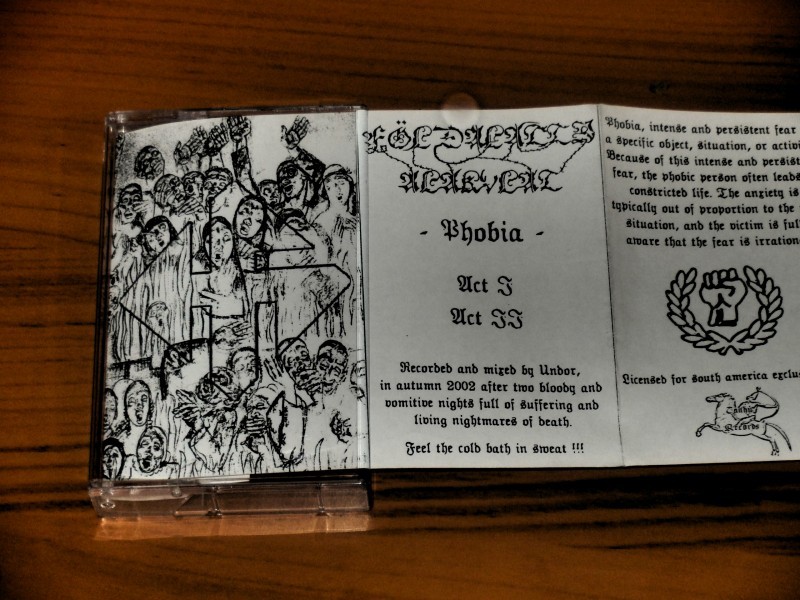 FÖLDALATTI
ALAKVLAT
- Phobia -
Act I
Act II
Recorded and mixed by Undor,
in autumn 2002 after two bloody and
vomitive nights full of suffering and
living nightmares of death.
Feel the cold bath in sweat !!!
Phobia, intense and persistent fear
a specific object, situation, or activi
Because of this intense and persist
fear, the phobic person often leads
constricted life. The anxiety is
typically out of proportion to the
situation, and the victim is ful
aware that the fear is irration
Licensed for south america exclus
Records